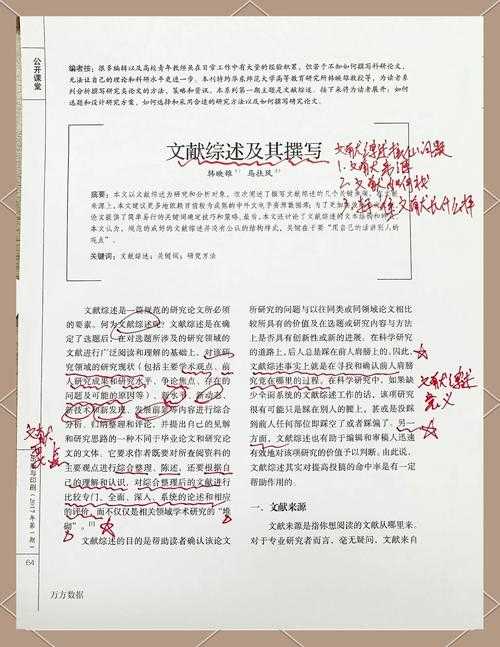 公开课堂
编者按:很多编辑以及高校青年教师在日常工作中有大量的经验积累,但苦于不知如何撰写科研论文,
无法让自己的理论和科研水平更进一步。本刊特约华东师范大学高等教育研究所韩映雄教授等,为读者系
列分析撰写研究类论文的方法、策略和尝试。本系列第一期主题是文献综述,接下来将为读者展开:如何
选题和设计研究方案、如何选择和采用合适的研究方法以及如何撰写研究论文。
文献综述及其撰写
韩映雄 马扶风
摘要:本文以文献综述为研究和分析对象,依次阐述了撰写文献综述的几个关键步骤。在文献
来源上,本文建议更多地依赖目前较为成熟的中外文电子资源数据库;为了更加
论文提供了简单易行的关键词确定技巧和策略。最后,本文还讨论了文献综述的文本结构和
本文认为,规范的或好的文献综述并没有公认的结构样式,关键在于要“用自己的话讲别人的
观点”。
关键词:文献综述;关键词;研究方法
文献综述是一篇规范的研究论文所必须
的要素。何为文献综述呢?文献综述是在确
定了选题后,在对选题所涉及的研究领域的
文献进行广泛阅读和理解的基础上,对该研
究领域的研究现状(包括主要学术观点、前
人研究成果和研究水平、争论焦点、存在的
问题及可能的原因等)、新水平、新动态、
新技术和新发现、发展前景等内容进行综合
分析、归纳整理和评论,并提出自己的见解
和研究思路的一种不同于毕业论文和研究论
文的文体。它要求作者既要对所查阅资料的
主要观点进行综合整理、陈述,还要根据自
己的理解和认识,对综合整理后的文献进行
比较专门、全面、深入、系统的论述和相应
的评价,而不仅仅是相关领域学术研究的“堆
砌”。[1]
文献综述的目的是帮助读者确认该论文
所研究的问题与以往同类或同领域论文相比
较所具有的价值及在选题或研究内容与方法
上是否具有创新性或新的进展。在科学研究
的道路上,后人总是踩在前人肩膀上的。因此,
文献综述事实上就是在寻找和确认前人肩膀
究竟在哪里的过程。在科学研究中,如果缺
少全面系统的文献综述工作的话,该项研究
很有可能只是踩在别人的脚上,甚或是没踩
到前人任何部位即踩空了或者踩偏了。另一
方面,文献综述也有助于编辑和审稿人迅速
有效地对该项研究的价值予以判断。由此说,
文献综述其实对提高投稿的命中率是有一定
帮助作用的。
一、文献来源
文献来源是指你想阅读的文献从哪里来。
对于专业研究者而言,毫无疑问,文献来自
文献综述
意义
64
万方数据